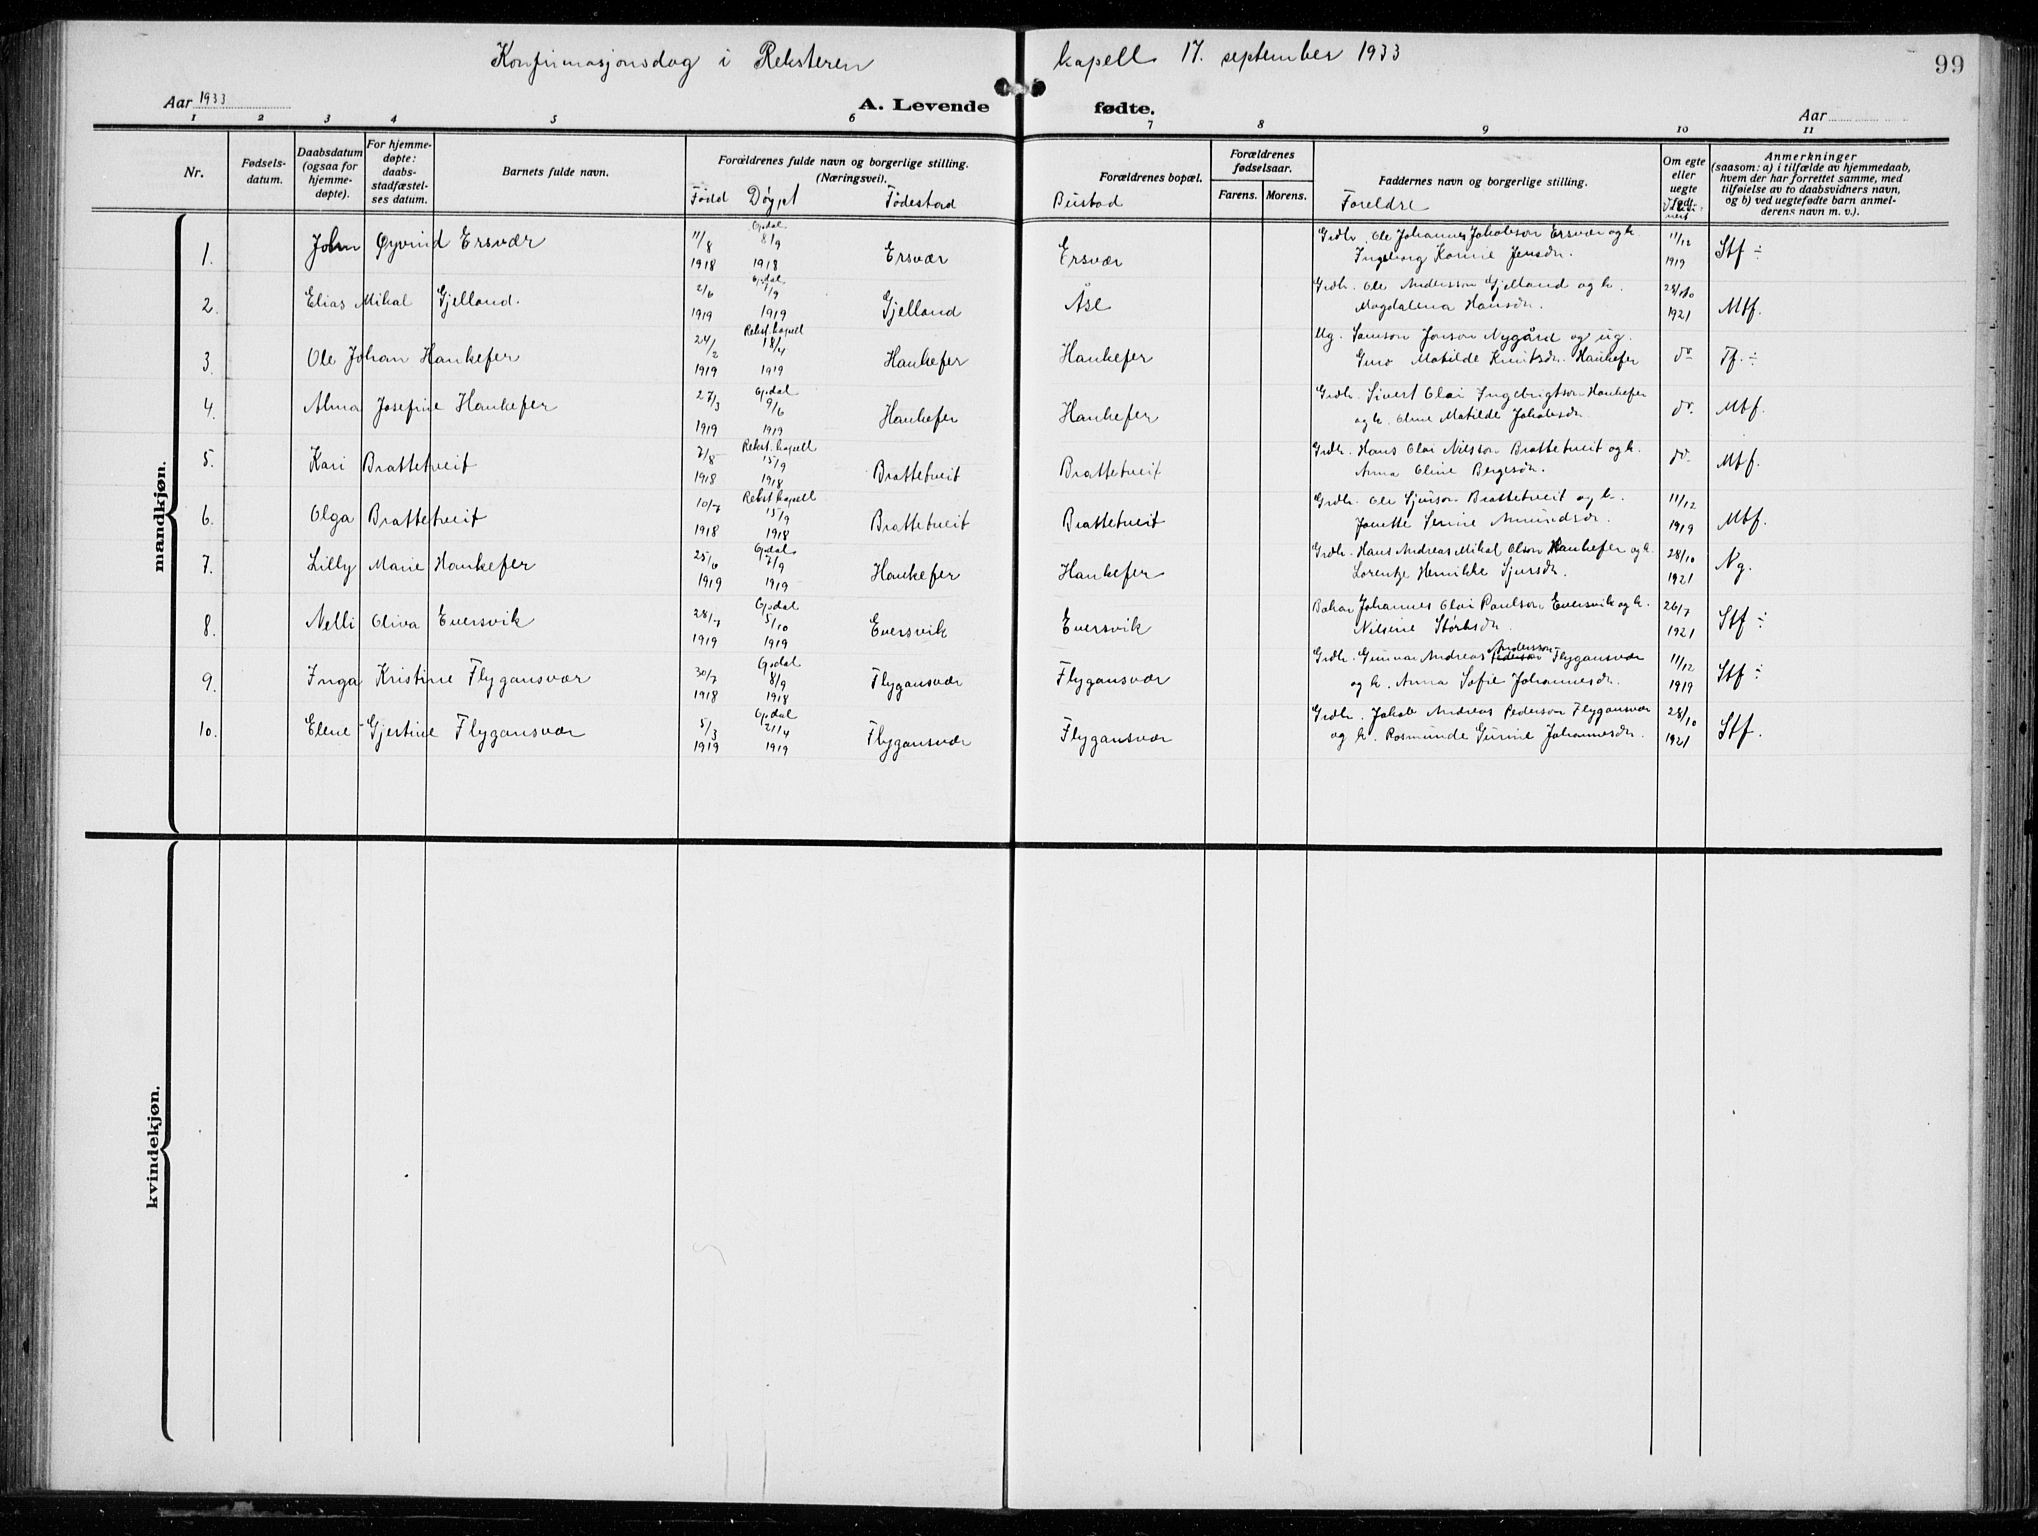 Konfirmasjonsdag i Reksteren kapell 17. september 1933
99
Aar 1933
A. Levende fødte.
Aar
1 2 3 4 5 6 7 8 9 10 11
Nr.
Fødsels-
datum.
Daabsdatum
(ogsaa for
hjemme-
døpte).
For hjemme-
døpte:
daabs-
stadfæstel-
ses datum.
Barnets fulde navn.
Forældrenes fulde navn og borgerlige stilling.
(Næringsvei).
Fødd Døypt Fødestad
Forældrenes bopæl.
Bustad
Forældrenes
fødselsaar.
Farens. Morens.
Faddernes navn og borgerlige stilling.
Foreldre
Om egte
eller
uegte
født.
Anmerkninger
(saasom: a) i tilfælde av hjemmedaab,
hvem der har forrettet samme, med
tilføielse av to daabsvidners navn,
og b) ved uegtefødte barn anmel-
derens navn m. v.).
mandkjøn.
1. John Øyvind Ersvær 11/8 1918 Opdal 8/9 1918 Ersvær Ersvær Grdbr. Ole Johannes Jakobson Ersvær og k.
Ingeborg Karine Jensdr. 11/12 1919 Stf ÷
2. Elias Mikal Gjelland. 2/6 1919 Opdal 7/9 1919 Gjelland Åse Grdbr. Ole Andersson Gjelland og k.
Magdalena Hansdr. 28/10 1921 Mtf.
3. Ole Johan Haukefer 24/2 1919 Rekst. kapell 18/4 1919 Haukefer Haukefer Ug. Samson Jonson Nygård og ug.
Matilde Knutsdr. Haukefer do Tf. ÷
4. Alma Josefine Haukefer 27/3 1919 Opdal 9/6 1919 Haukefer Haukefer Grdbr. Sivert Olai Ingebrigtson Haukefer
og k. Oline Matilde Jakobsdr. do. Mtf.
5. Kari Brattetveit 7/8 1918 Rekst. kapell 15/9 1918 Brattetveit Brattetveit Grdbr. Hans Olai Nilsson Brattetveit og k.
Anna Oline Bergesdr. do. Mtf.
6. Olga Brattetveit 10/7 1918 Rekst. kapell 15/9 1918 Brattetveit Brattetveit Grdbr. Ole Sjurson Brattetveit og k.
Jonette Serine Amundsdr. 11/12 1919 Mtf.
7. Lilly Marie Haukefer 25/6 1919 Opdal 7/9 1919 Haukefer Haukefer Grdbr. Hans Andreas Mikal Olson Haukefer og k.
Lorentze Henrikke Sjursdr. 28/10 1921 Ng.
8. Nelli Oliva Eversvik 28/7 1919 Opdal 5/10 1919 Eversvik Eversvik Bakar Johannes Olai Paulson Eversvik og k.
Nilsine Størksdr. 26/7 1921 Stf ÷
9. Inga Kristine Flygansvær 30/7 1918 Opdal 8/9 1918 Flygansvær Flygansvær Grdbr. Gunnar Andreas Andersson Pederson Flygansvær
og k. Anna Sofie Johannesdr. 11/12 1919 Stf ÷
10. Elene Gjertine Flygansvær 5/3 1919 Opdal 21/4 1919 Flygansvær Flygansvær Grdbr. Jakob Andreas Pederson Flygansvær
og k. Rosmunde Gurine Johannesdr. 28/10 1921 Stf.
kvindekjøn.